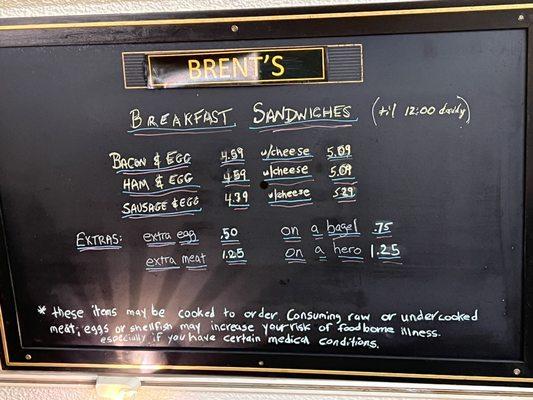 BRENT'S
BREAKFAST SANDWICHES (til 12:00 daily)
BACON & EGG 4.59 w/cheese 5.09
HAM & EGG 4.59 w/cheese 5.09
SAUSAGE & EGG 4.79 w/cheese 5.29
EXTRAS: extra egg .50 on a bagel .75
extra meat 1.25 on a hero 1.25
* these items may be cooked to order. Consuming raw or undercooked
meat, eggs or shellfish may increase your risk of foodborne illness.
especially if you have certain medical conditions.